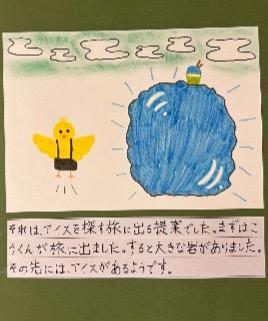 それは、アイスを探す旅に出る提案でした。まずはこ
うくんが旅に出ました。すると大きな岩がありました。
その先には、アイスがあるようです。